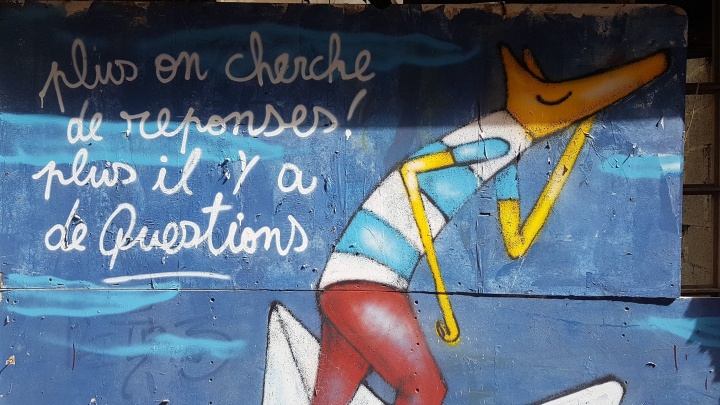 plus on cherche
de reponses!
plus il Y a
de Questions